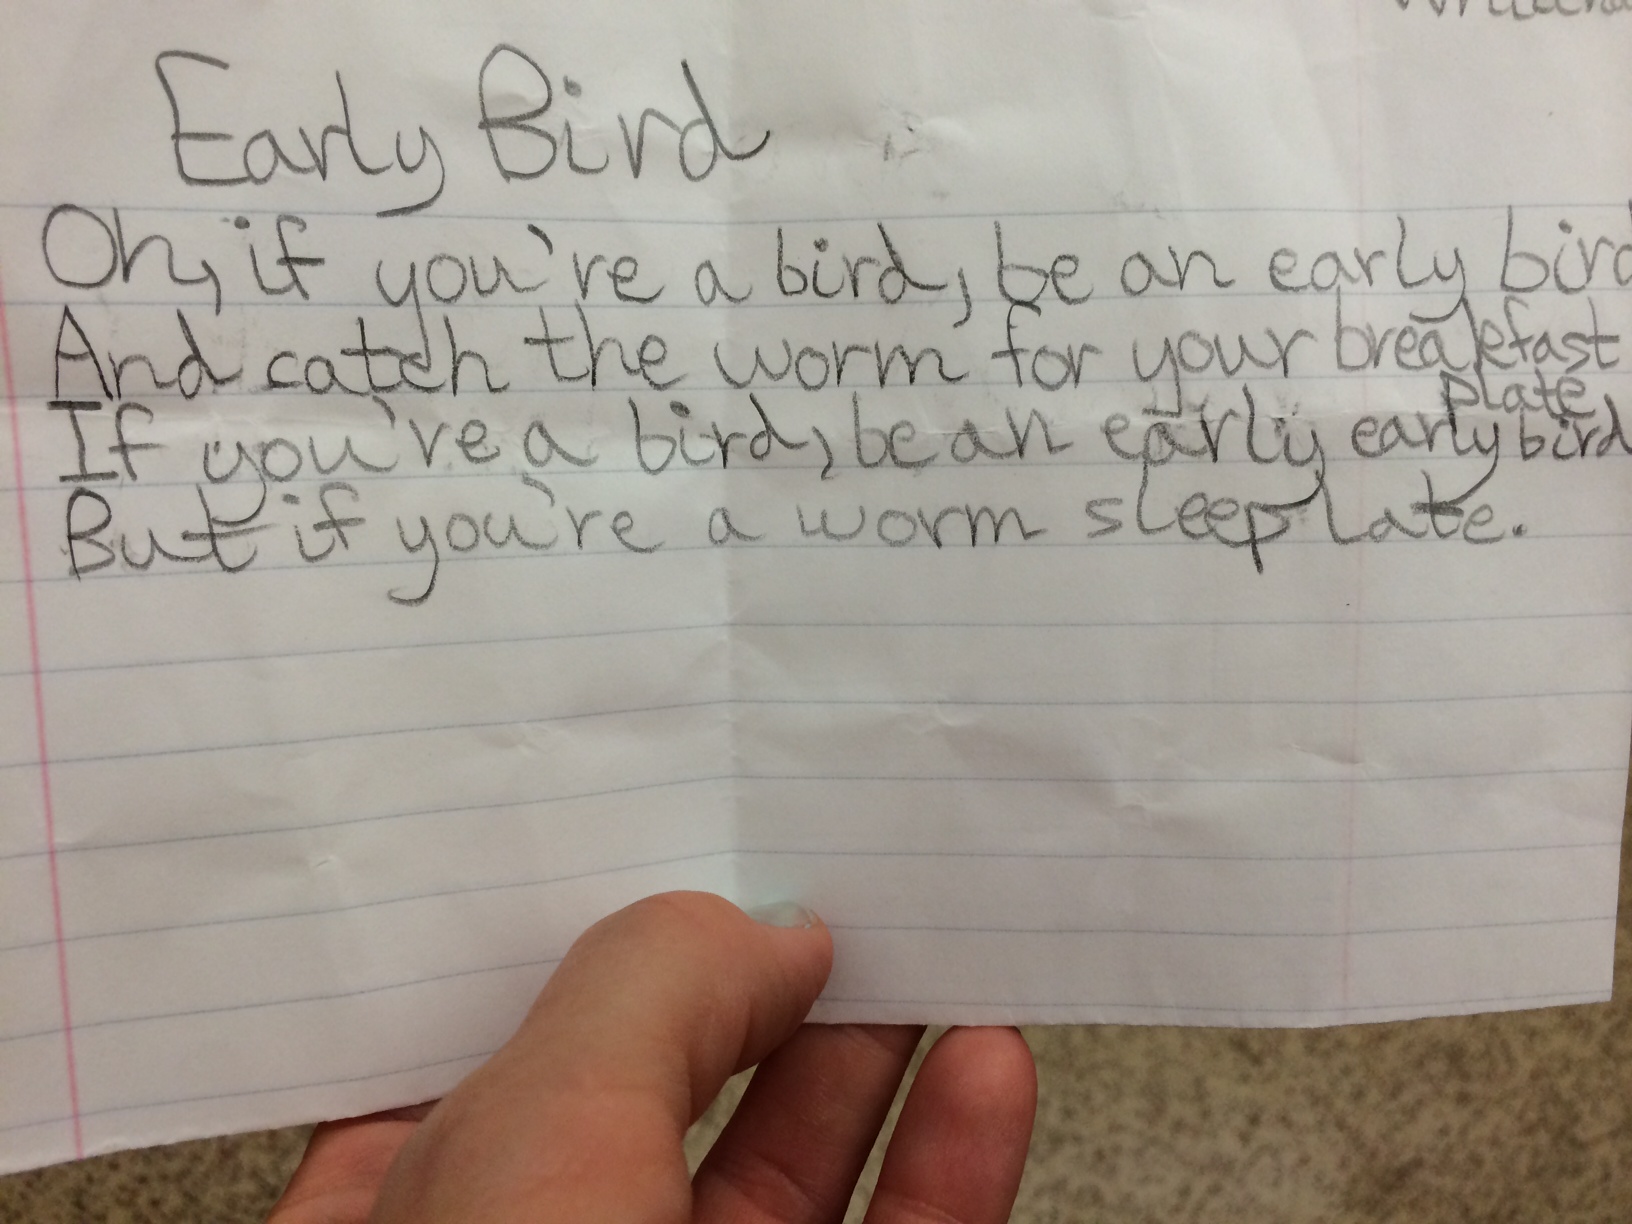 Early Bird
Oh, if you're a bird, be an early bird
And catch the worm for your breakfast
plate,
If you're a bird, be an early early bird
But if you're a worm sleep late.